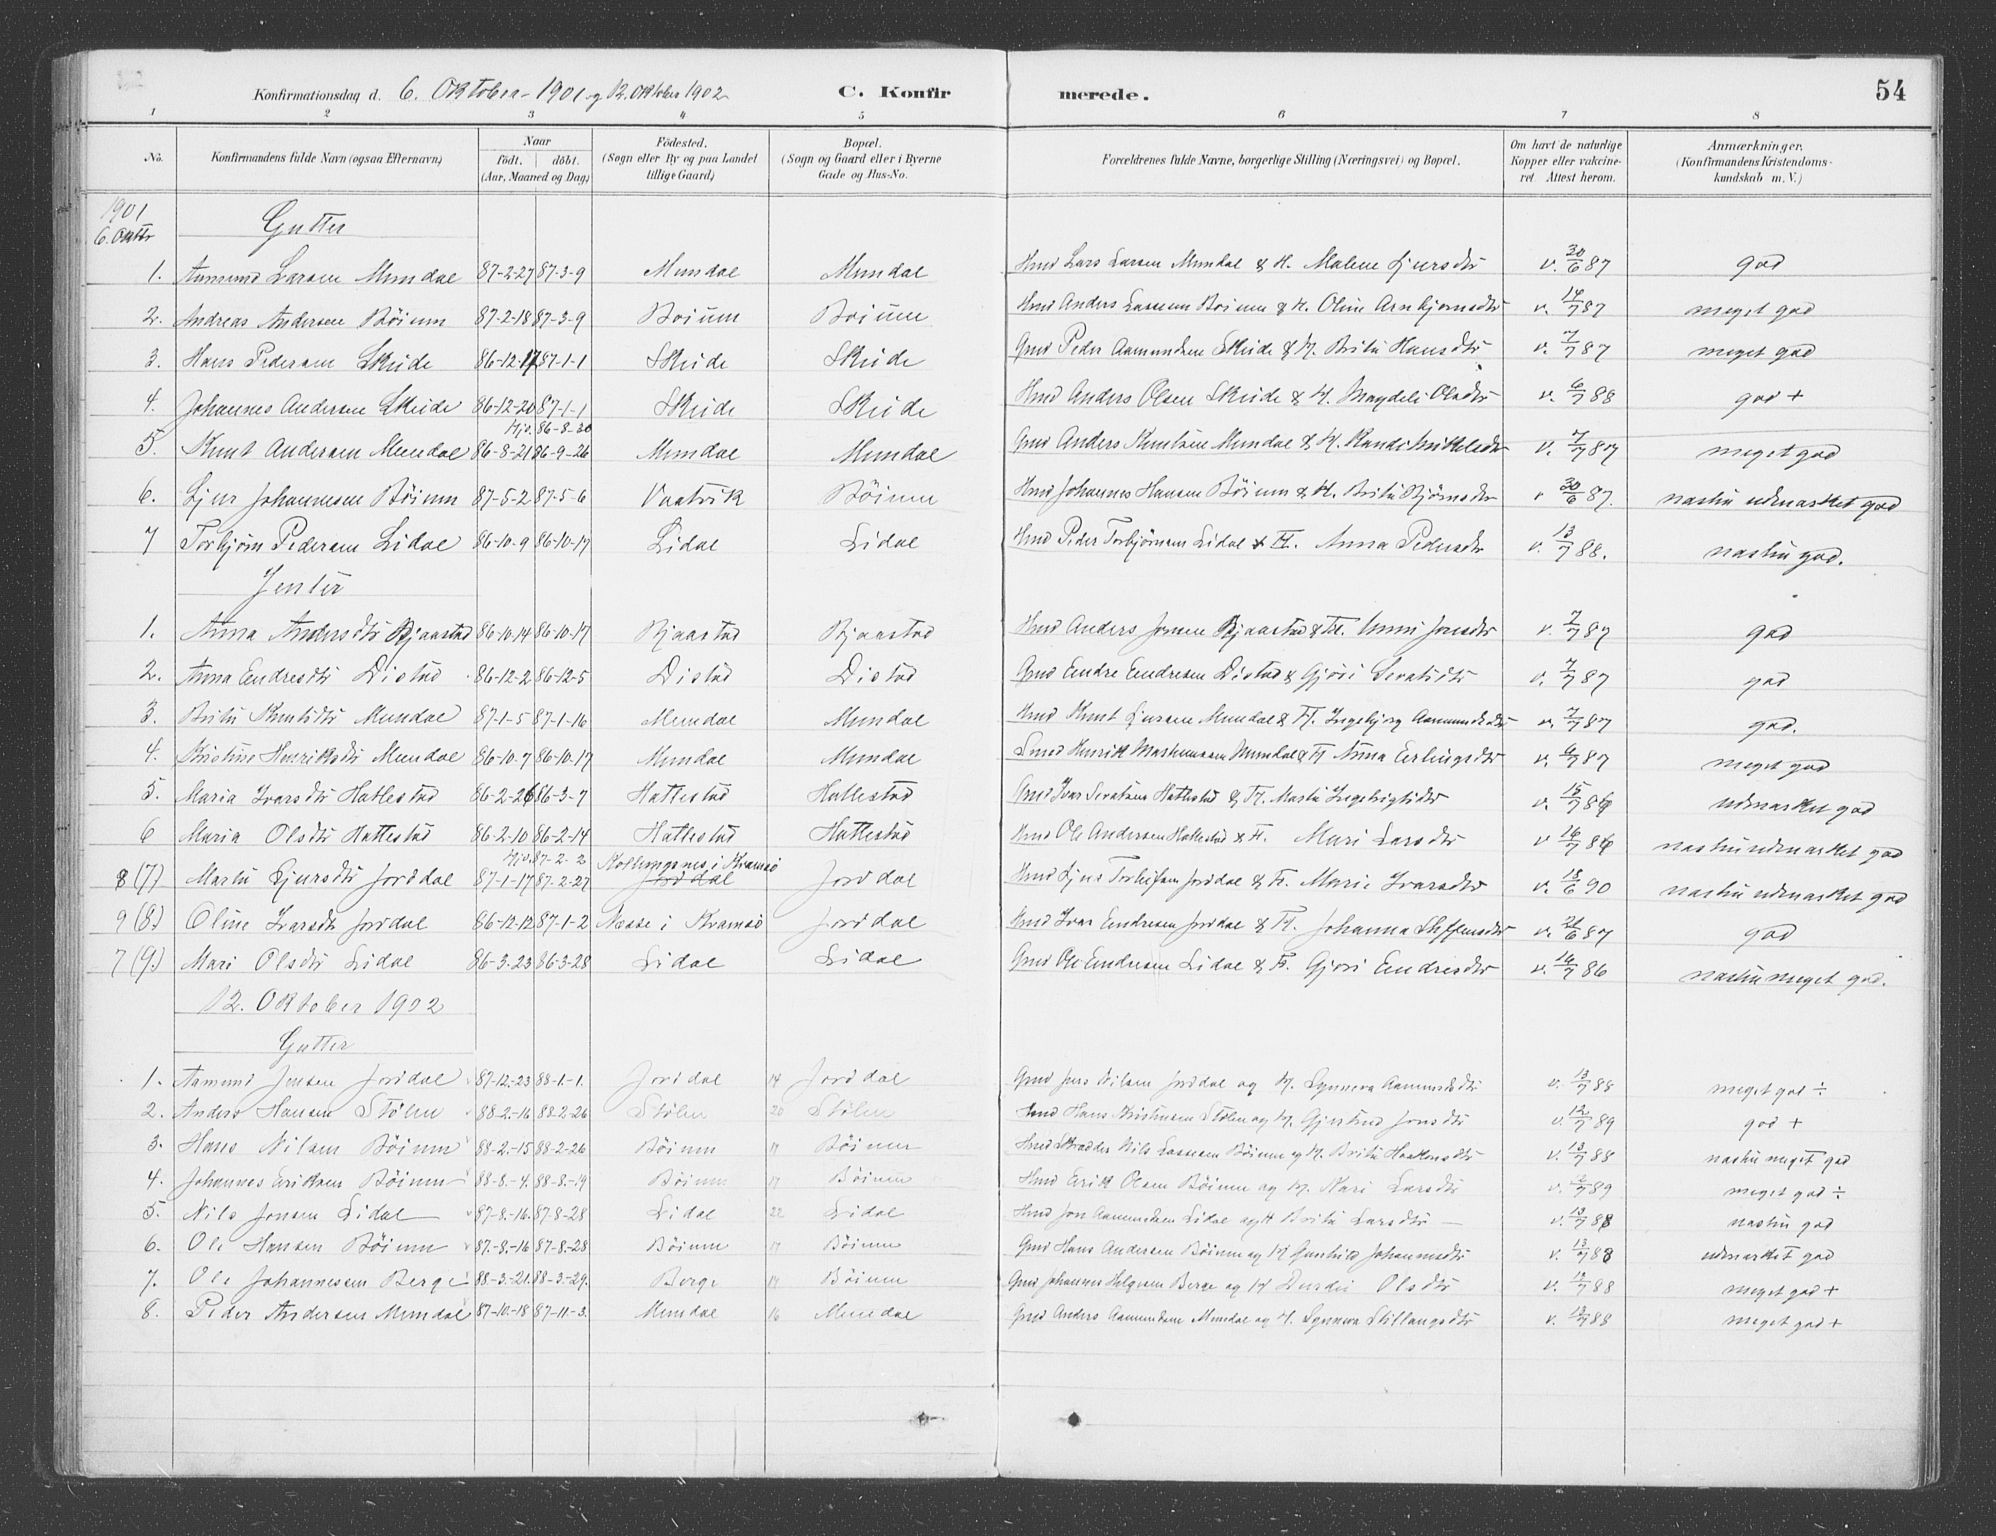 Konfirmationsdag d. 6. Oktober 1901 og 12. Oktober 1902 C. Konfirmerede. 54
1 2 3 4 5 6 7 8
No. Konfirmandens fulde Navn (ogsaa Efternavn) Naar født. døbt. (Aar, Maaned og Dag) Fødested. (Sogn eller By og paa Landet tillige Gaard) Bopæl. (Sogn og Gaard eller i Byerne Gade og Hus-No. Forældrenes fulde Navne, borgerlige Stilling (Næringsvei) og Bopæl. Om havt de naturlige Kopper eller vakcineret. Attest herom. Anmærkninger. (Konfirmandens Kristendomskundskab m. V.)
1901
6. Oktbr Gutter
1. Aamund Larsen Mundal 87-2-27 87-3-9 Mundal Mundal Hmd Lars Larsen Mundal & H. Malene Ljursdtr v. 30/6 87 god
2. Andreas Andersen Bøium 87-2-18 87-3-9 Boium Boium Hmd Anders Lassesen Boium & H. Oline Arnbjørnsdtr v. 14/7 87 meget god
3. Hans Pedersen Skeide 86-12-17 87-1-1 Skeide Skeide Gmd Peder Aamundsen Skeide & H. Brita Hansdtr v. 7/7 87 meget god
4. Johannes Andersen Skeide 86-12-20 87-1-1 Skeide Skeide Hmd Anders Olsen Skeide & H. Magdeli Olsdtr v. 6/7 88 god +
Hjd. 86-8-30
5. Knut Andersen Mundal 86-8-21 86-9-26 Mundal Mundal Gmd Anders Knutsen Mundal & H. Randi Mikkelsdtr v. 7/7 87 meget god
6. Ljur Johannesen Bøium 87-5-2 87-5-6 Vaatvik Bøium Hmd Johannes Hansen Bøium & H. Brita Bjørnsdtr v 30/6 87. næsten udmærket god
7 Torbjørn Pedersen Lidal 86-10-9 86-10-17 Lidal Lidal Hmd Peder Torbjørnsen Lidal & H. Anna Pedersdtr v. 13/7 88. næsten god.
Jenter
1. Anna Andersdtr Bjaastad 86-10-14 86-10-17 Bjaastad Bjaastad Hmd Anders Jonsen Bjaastad & H. Unni Jonsdtr v. 7/7 87 god
2. Anna Endresdtr Distad 86-12-2 86-12-5 Distad Distad Gmd Endre Endresen Distad & Gjøri Sevatsdtr v. 7/7 87 god
3. Brita Knutsdtr Mundal 87-1-5 87-1-16 Mundal Mundal Hmd Knut Ljursen Mundal & H. Ingebjørg Aamundsdtr v. 7/7 87 god.
4. Kristine Henriksdtr Mundal 86-10-7 86-10-17 Mundal Mundal Smed Henrik Mundal & H Anna Erlingsdtr v. 9/7 87 meget god
5. Maria Ivarsdtr Hatlestad 86-2-26 86-3-7 Hatlestad Hatlestad Gmd Ivar Sevatsen Hatlestad & H. Marta Ingebrigtsdtr v. 15/7 86 udmærket god
6 Maria Olsdtr Hatlestad 86-2-10 86-2-14 Hatlestad Hatlestad Hmd Ole Andersen Hatlestad & H. Mari Larsdtr v 16/7 86 næsten udmærket god
Hjd. 87-2-2 i Kvamsø
8 (7) Marta Ljursdtr Jordal 87-1-17 87-2-27 Jordal Jordal Hmd Ljur Jordal & H. Marie Ivarsdtr v. 18/6 90 næsten udmærket god
9 (8) Oline Ivarsdtr Jordal 86-12-12 87-1-2 Næsse i Kvamsø Jordal Hmd Ivar Endresen Jordal & H. Johanna Steffensdtr v. 21/6 87 god
7 (9) Mari Olsdtr Lidal 86-3-23 86-3-28 Lidal Lidal Gmd Ole Endresen Lidal & H. Gjøri Endresdtr v. 16/7 86 næsten meget god.
12. Oktober 1902
Gutter
1. Aamund Jensen Jordal 87-12-23 88-1-1. Jordal 14 Jordal Gmd Jens Nilsen Jordal og H. Synneva Aamundsdtr v. 13/7 88 meget god ÷
2. Anders Hansen Stølen 88-2-16 88-2-26 Stølen 20 Stølen Hmd Hans Kristensen Stølen og H. Gjertrud Jonsdtr v. 12/7 89 god +
3. Hans Nilsen Bøium 88-2-15 88-2-26 Bøium 17 Bøium Hmd Skrædder Nils Lassesen Bøium og H. Brita Haakensdtr v. 13/7 88 næsten meget god
4. Johannes Eriksen Bøium 88-8-4. 88-8-19 Bøium 17 Bøium Hmd Erik Olsen Bøium og H. Kari Larsdtr v. 12/7 89 meget god ÷
5. Nils Jonsen Lidal 87-8-16. 87-8-28 Lidal 22 Lidal Hmd Jon Aamundsen Lidal og H Brita Larsdtr v. 13/7 88 næsten god
6. Ole Hansen Bøium 87-8-16 87-8-28 Bøium 17 Bøium Gmd Hans Andersen Bøium og H Gunhild Johannesdtr v. 13/7 88 udmærket god
7. Ole Johannessen Berge 88-3-21. 88-3-29. Berge 17 Bøium Gmd Johannes Helgesen Berge og H Durdei Olsdtr v. 13/7 88 meget god +
8. Peder Andersen Mundal 87-10-18 87-11-3. Mundal 16 Mundal Gmd Anders Aamundsen Mundal og H. Synneva Stillaugsdtr v. 13/7 88 meget god +